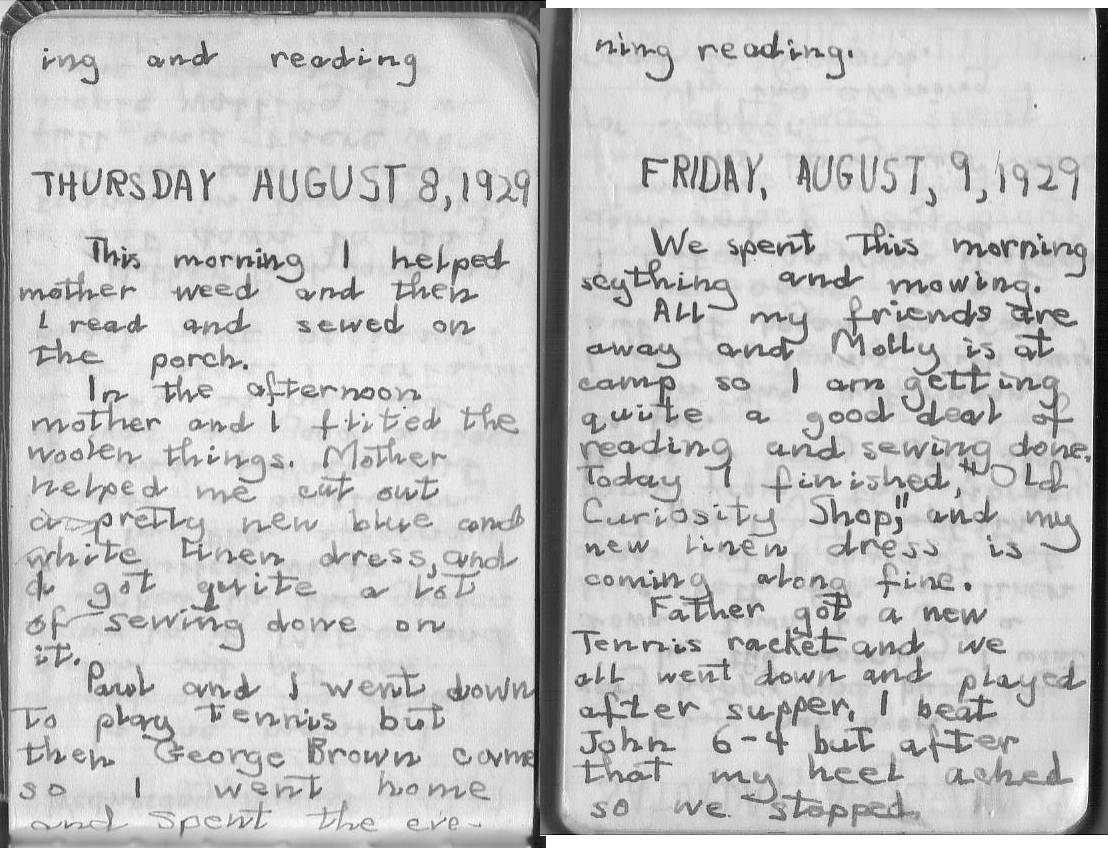 ing and reading
THURSDAY AUGUST 8, 1929
This morning I helped
mother weed and then
I read and sewed on
the porch.
In the afternoon
mother and I flited the
woolen things. Mother
helped me cut out
a pretty new blue and
white linen dress, and
I got quite a lot
of sewing done on
it.
Paul and I went down
to play tennis but
then George Brown came
so I went home
and spent the eve-
ning reading.
FRIDAY, AUGUST, 9, 1929
We spent this morning
scything and mowing.
All my friends are
away and Molly is at
camp so I am getting
quite a good deal of
reading and sewing done.
Today I finished, "Old
Curiosity Shop," and my
new linen dress is
coming along fine.
Father got a new
Tennis racket and we
all went down and played
after supper. I beat
John 6-4 but after
that my heel ached
so we stopped.